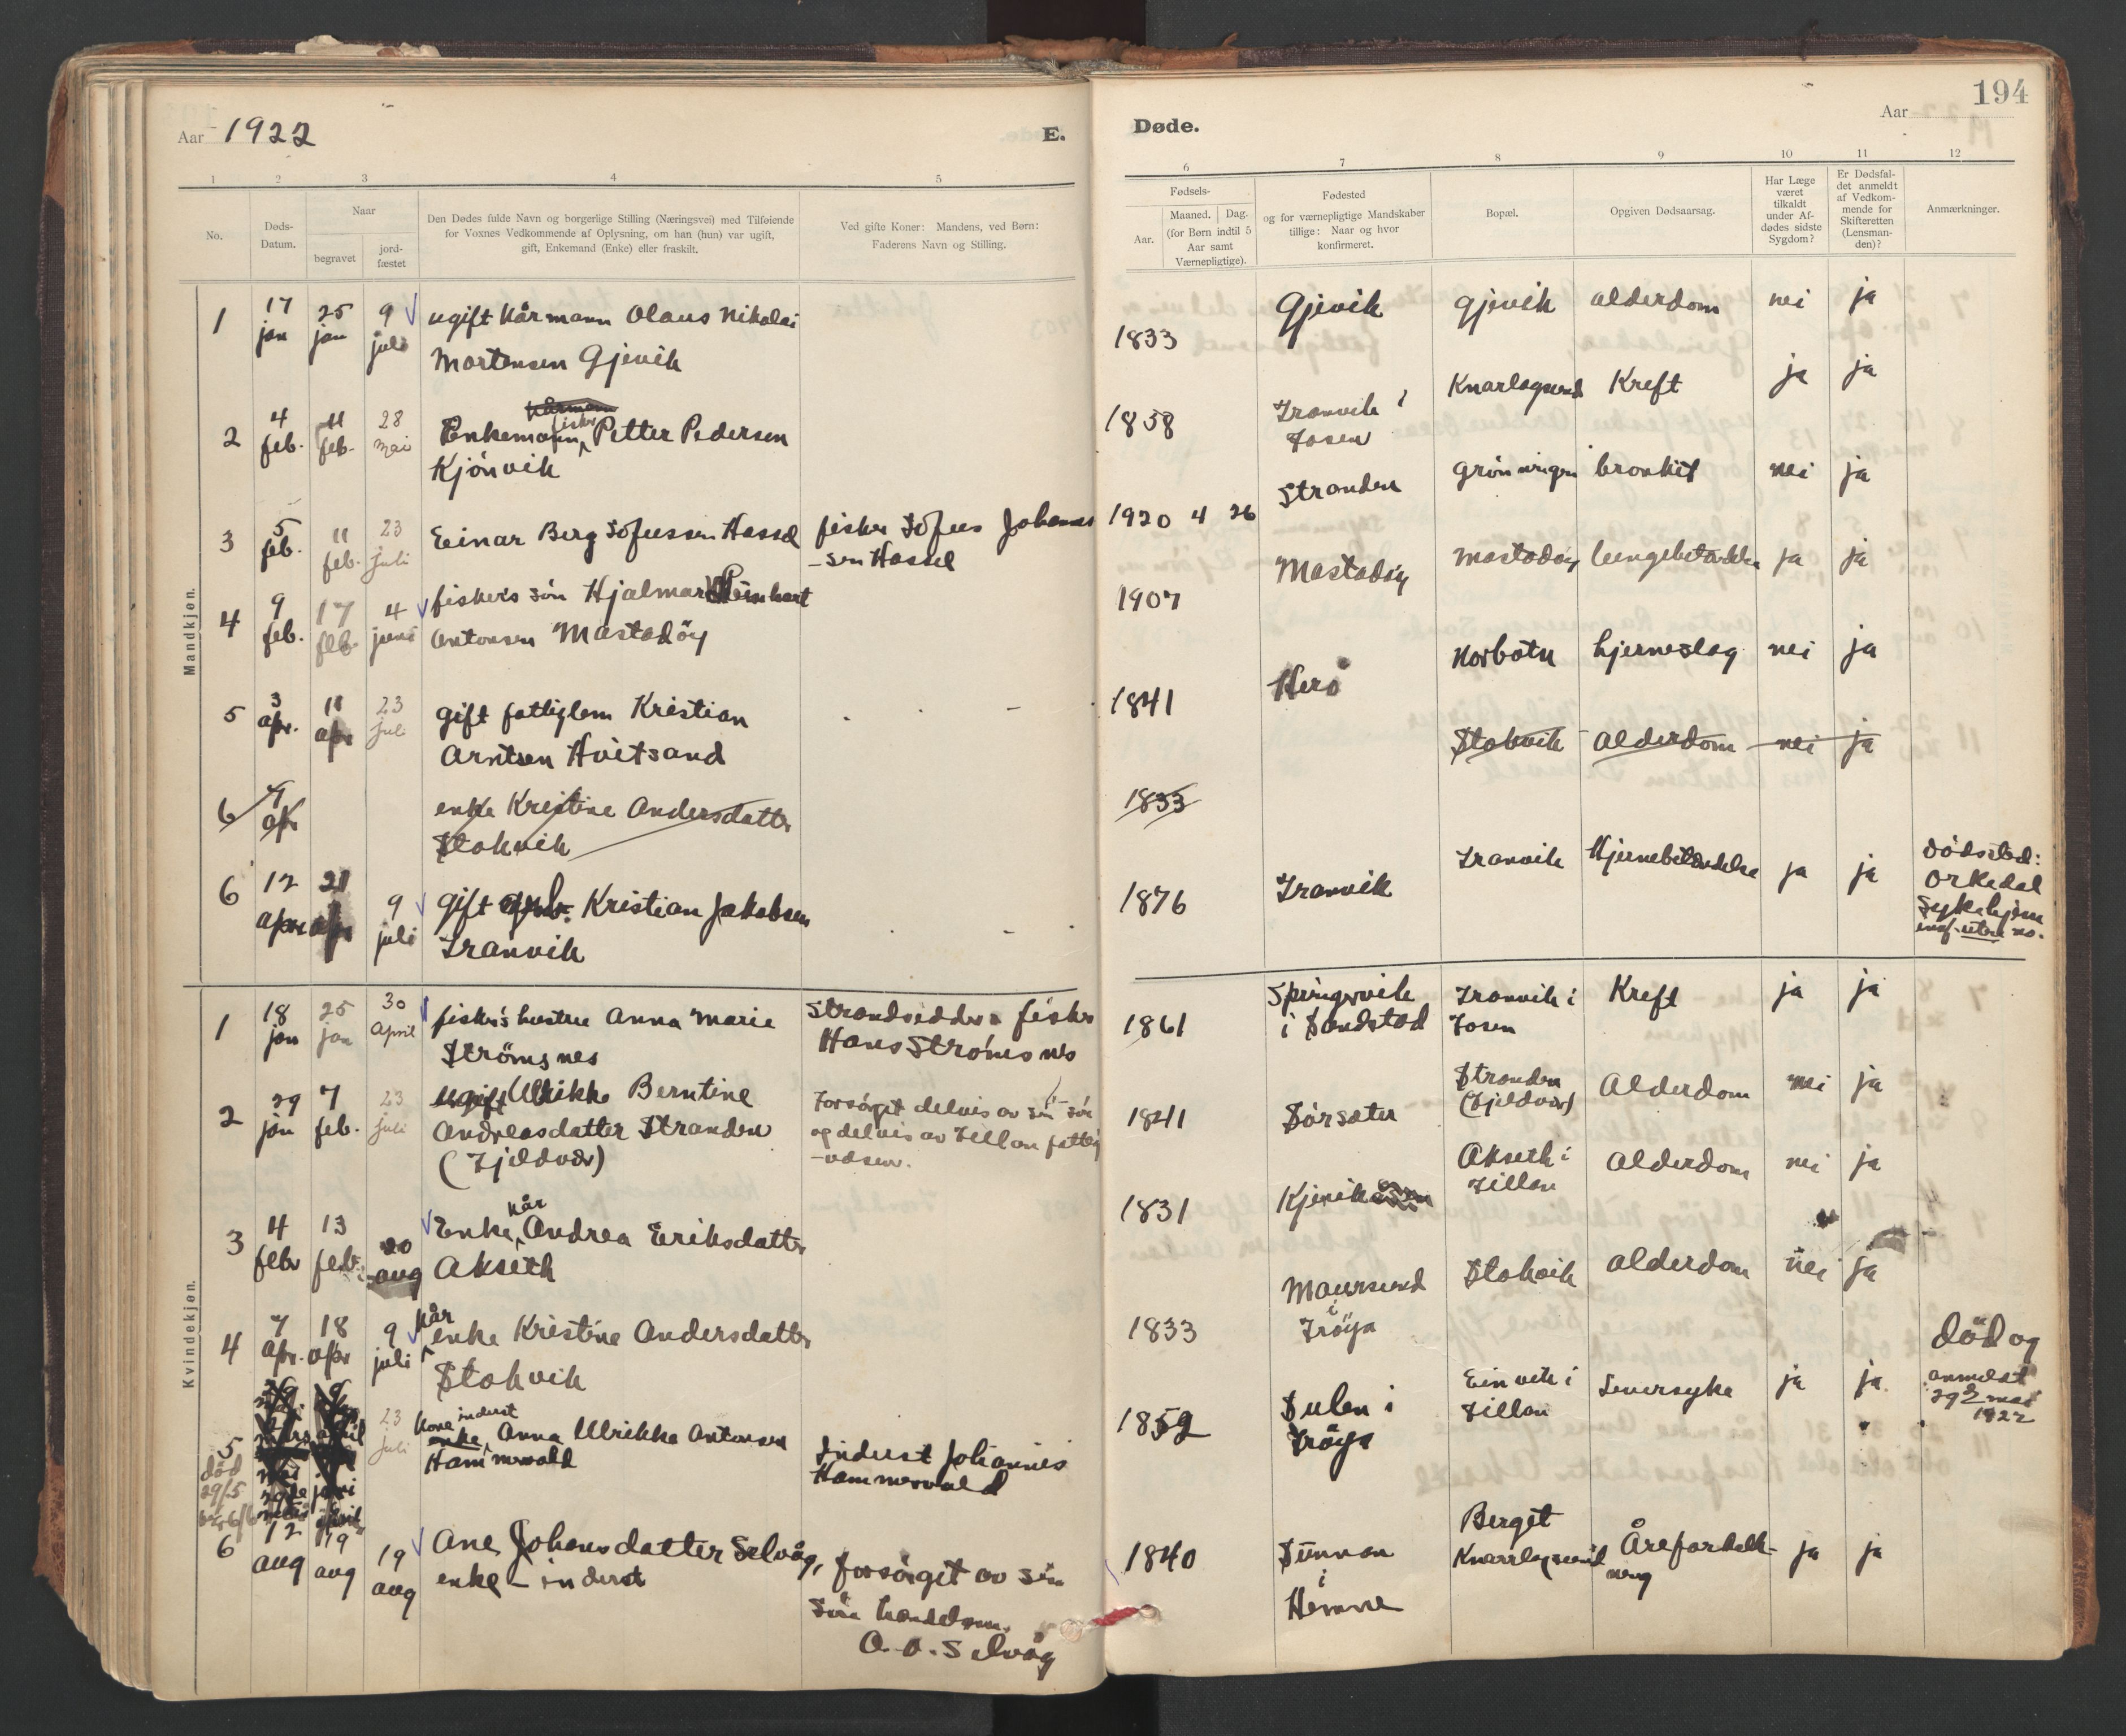 Aar 1922
E.
1 2 3 4 5
No.
Døds-
Datum.
Naar
begravet
jord-
fæstet
Den Dødes fulde Navn og borgerlige Stilling (Næringsvei) med Tilføiende
for Voxnes Vedkommende af Oplysning, om han (hun) var ugift,
gift, Enkemand (Enke) eller fraskilt.
Ved gifte Koner: Mandens, ved Børn:
Faderens Navn og Stilling.
Mandkjøn.
1 17 jan 25 jan 9 juli ugift kårmann Olaus Nikolai
Mortensen Gjevik
kårmann
fisker
2 4 feb. 11 feb. 28 mai Enkemann, Petter Pedersen
Kjönvik
3 5 feb. 11 feb. 23 juli Einar Berg Sofussen Hassel fisker Sofus Johannes
-sen Hassel
4 9 feb. 17 feb. 4 juni fiskers sön Hjalmar Reinhart
Antonsen Mastadöy
5 3 apr. 11 apr 23 juli gift fattiglem Kristian
Arntsen Hvitsand
6 7 apr enke Kristine Andersdatter
Stokvik
6 12 apr 21 apr 9 juli gift Kristian Jakobsen
Tranvik
Kvindekjøn.
1 18 jan 25 jan 30 April fisker's hustru Anna Marie
Strömsnes
Strandsidder fisker
Hans Strömsnes
2 29 jan 7 feb. 23 juli ugift Ulrikke Berntine
Andreasdatter Stranden
(Fjeldvær)
Forsörget delvis av sin sön
og delvis av Fillan fattig
-væsen.
kår
3 4 febr 13 febr. 20 aug Enke, Andrea Eriksdatter
Akseth
4 7 apr. 18 apr 9 juli kår
enke Kristine Andersdatter
Stokvik
5
död
29/5
23 juli Kone inderst
enke, Anna Ulrikke Antonsen
Hammervold
Inderst Johannes
Hammervold
6 12 aug 19 aug 19 aug Ane Johansdatter Selvåg,
enke - inderst
forsörget av sin
sön handelsm.
A. O. Selvåg
Døde.
Aar
194
6 7 8 9 10 11 12
Fødsels-
Aar.
Maaned. Dag.
(for Børn indtil 5
Aar samt
Værnepligtige).
Fødested
og for værnepligtige Mandskaber
tillige: Naar og hvor
konfirmeret.
Bopæl.
Opgiven Dødsaarsag.
Har Læge
været
tilkaldt
under Af-
dødes sidste
Sygdom?
Er Dødsfal-
det anmeldt
af Vedkom-
mende for
Skifteretten
(Lensman-
den)?
Anmærkninger.
1833 Gjevik Gjevik alderdom nei ja
1858 Tranvik i
Fosen
Knarlagsund Kreft ja ja
1920 4 26 Stranden Gröningen bronkit nei ja
1907 Mastadöy Mastadöy lungebetændelse ja ja
1841 Herö Korboten hjerneslag nei ja
1833 Stokvik Alderdom nei ja
1876 Tranvik Tranvik Hjernebetændelse ja ja
Dödssted:
Orkedal
Sykehjem
1861 Springvik
i Sandstad
Tranvik i
Fosen
Kreft ja ja
1841 Sörsæter Stranden
(Fjeldvær)
Alderdom nei ja
1831 Kjerik Akseth i
Fillan
Alderdom nei ja
1833 Maursund
i
Fröya
Stokvik alderdom nei ja
1852 Sulen i
Fröya
Einvik i
Fillan
Leversyke ja ja
död og
anmeldt
29de mai
1922
1840 Sunnan
i
Hemne
Berget
Knarrlagsund
Åreforkalk-
ning
ja ja